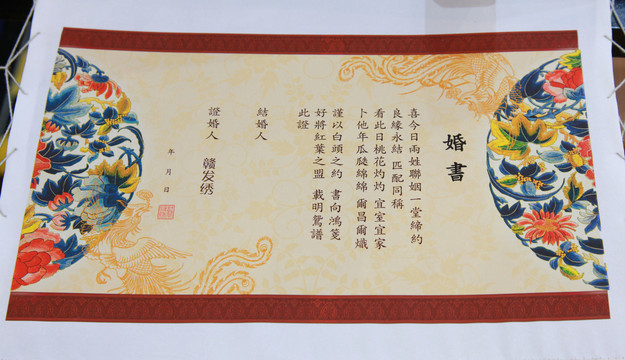 婚書
喜今日兩姓聯姻 一堂締約
良緣永結 匹配同稱
看此日桃花灼灼 宜室宜家
卜他年瓜瓞綿綿 爾昌爾熾
謹以白頭之約 書向鴻箋
好將紅葉之盟 載明鴛譜
此證
結婚人
證婚人
赣发绣
年 月 日